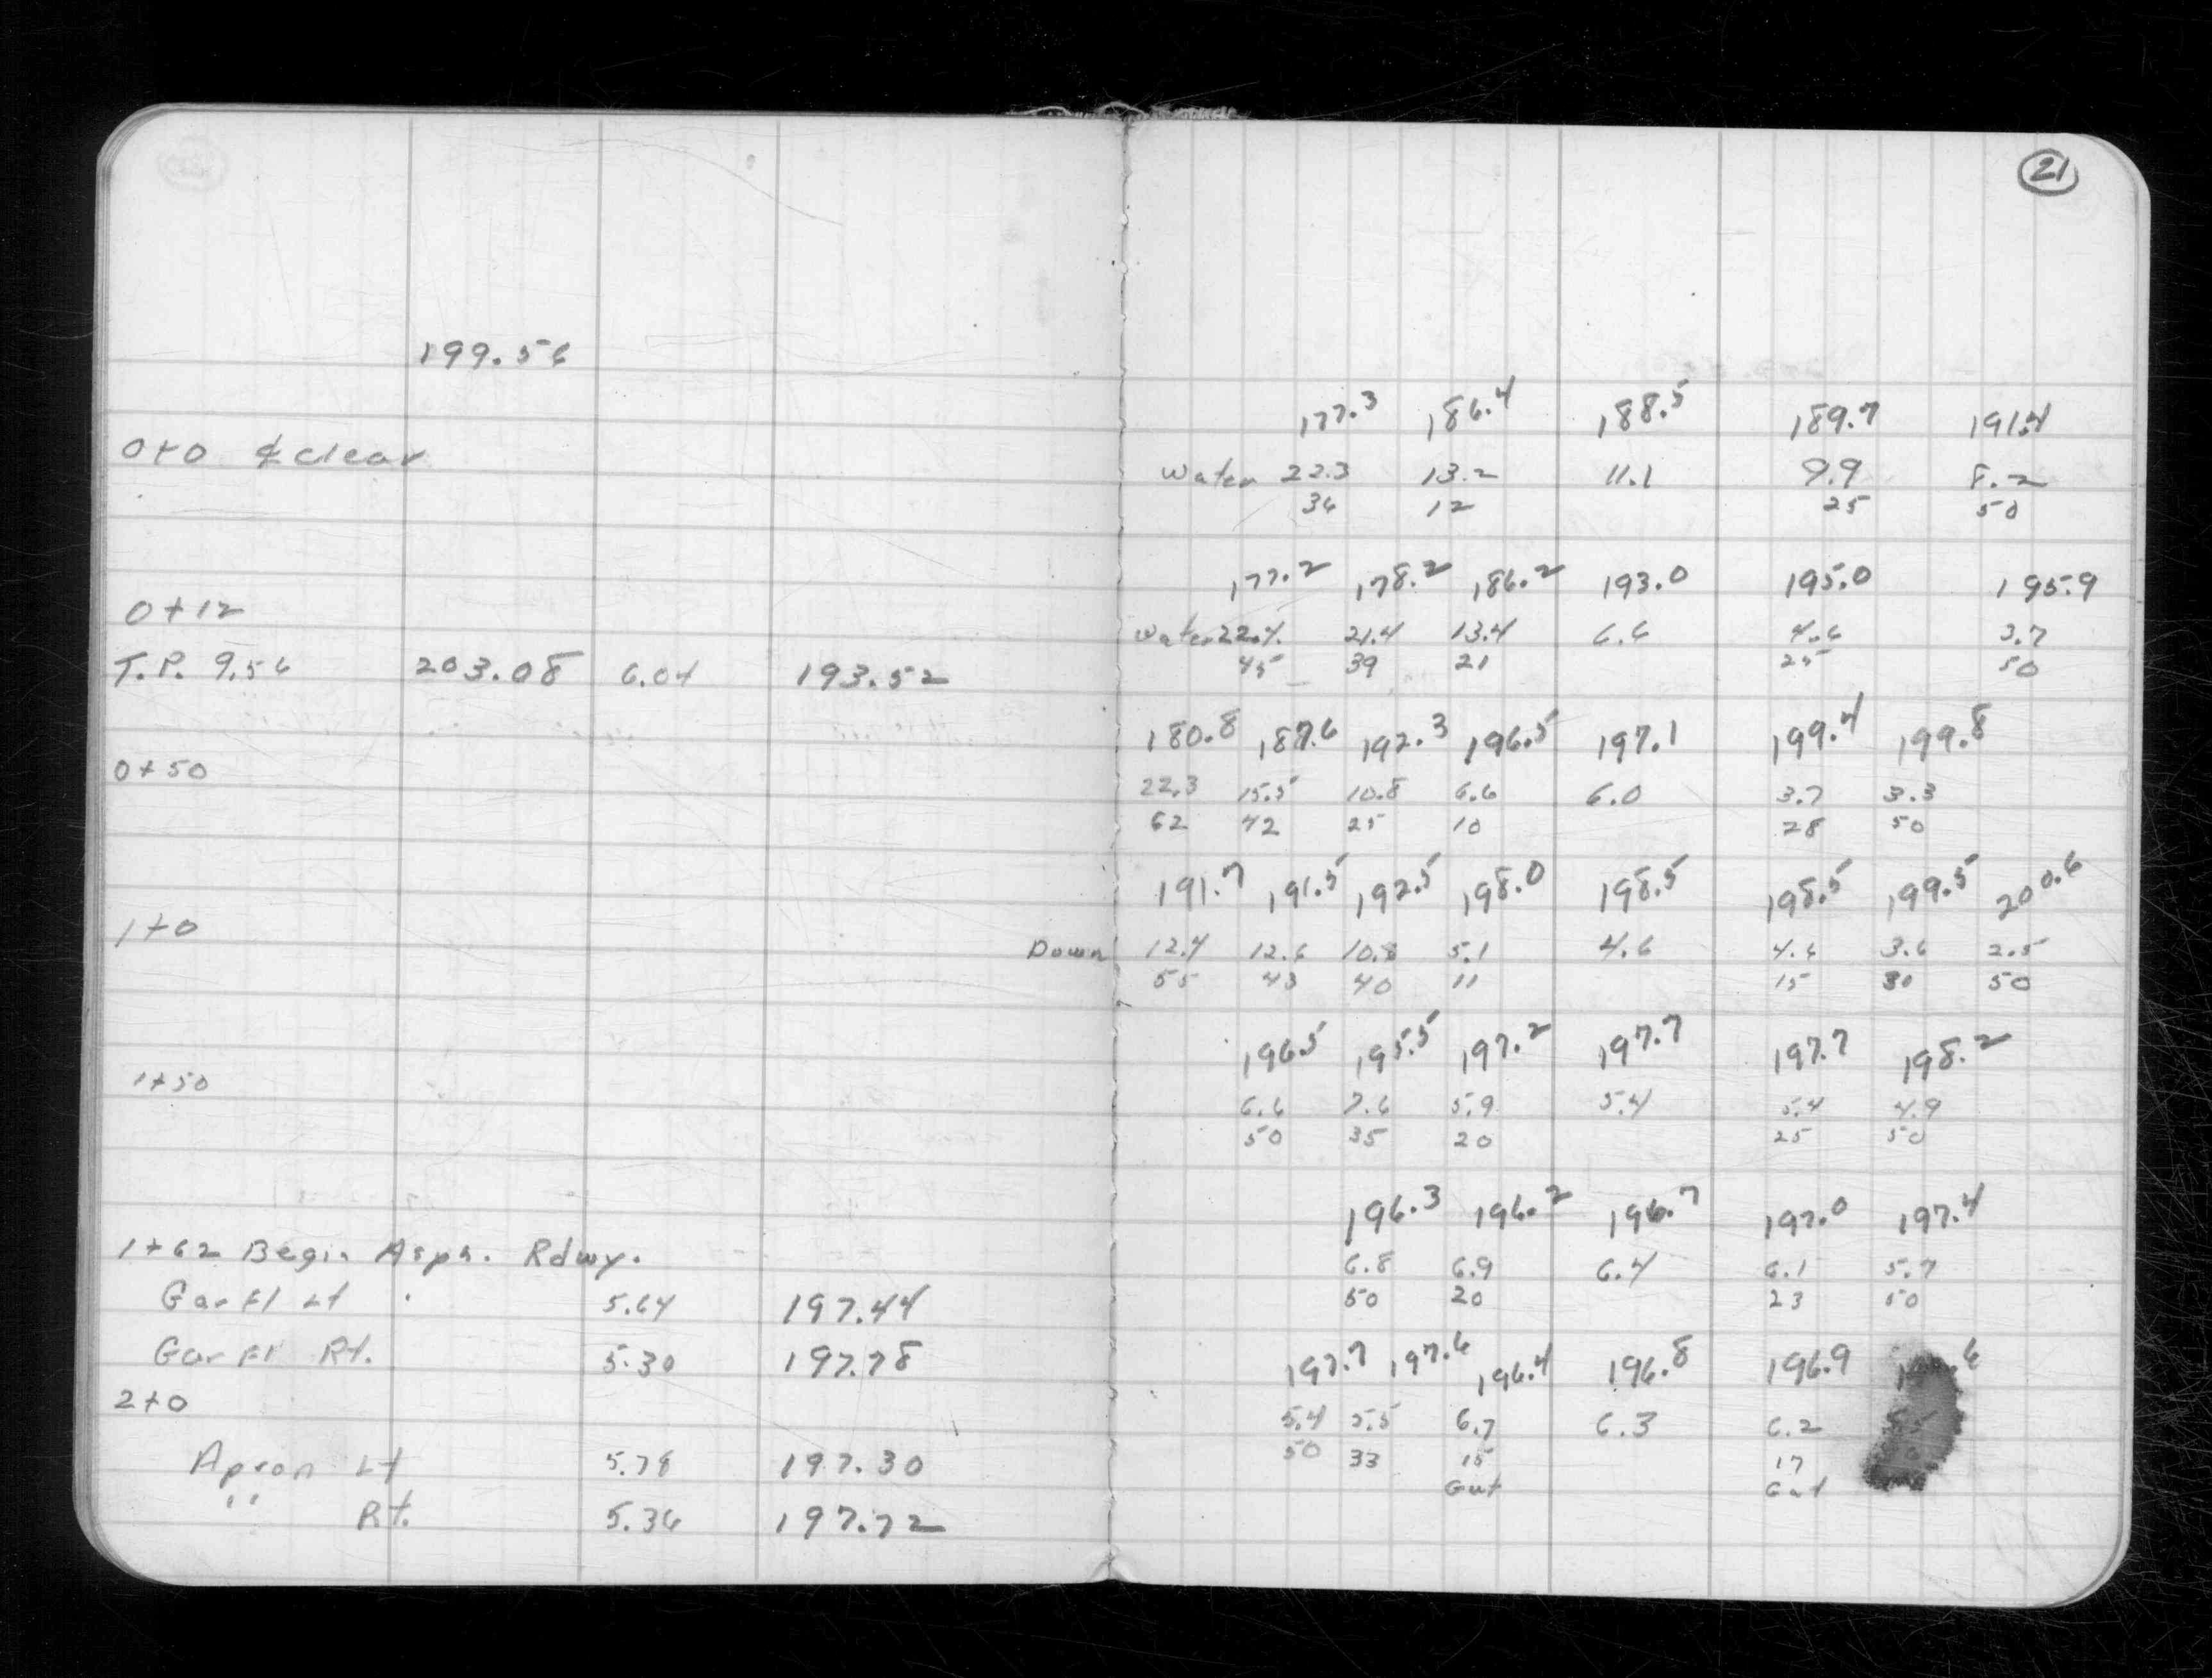 21
199.56
177.3 186.4 188.5 189.7 191.4
0+0 ¢ clear
Water 22.3 13.2 11.1 9.9 8.2
36 12 25 50
177.2 178.2 186.2 193.0 195.0 195.9
0+12
Water 22.4 21.4 13.4 6.6 4.6 3.7
45 39 21 25 50
T.P. 9.56 203.08 6.04 193.52
180.8 187.6 192.3 196.5 197.1 199.4 199.8
0+50
22.3 15.5 10.8 6.6 6.0 3.7 3.3
62 42 25 10 28 50
191.7 191.5 192.5 198.0 198.5 198.5 199.5 200.6
1+0
Down 12.4 12.6 10.8 5.1 4.6 4.6 3.6 2.5
55 43 40 11 15 30 50
196.5 195.5 197.2 197.7 197.7 198.2
1+50
6.6 7.6 5.9 5.4 5.4 4.9
50 35 20 25 50
196.3 196.2 196.7 197.0 197.4
1+62 Begin Asph. Rdwy.
6.8 6.9 6.4 6.1 5.7
50 20 23 50
Gar Fl Lt 5.64 197.44
Gar Fl Rt. 5.30 197.78
197.7 197.6 196.4 196.8 196.9 .6
2+0
5.4 5.5 6.7 6.3 6.2
50 33 15 17
Gut Gut
Apron Lt 5.78 197.30
" Rt. 5.36 197.72